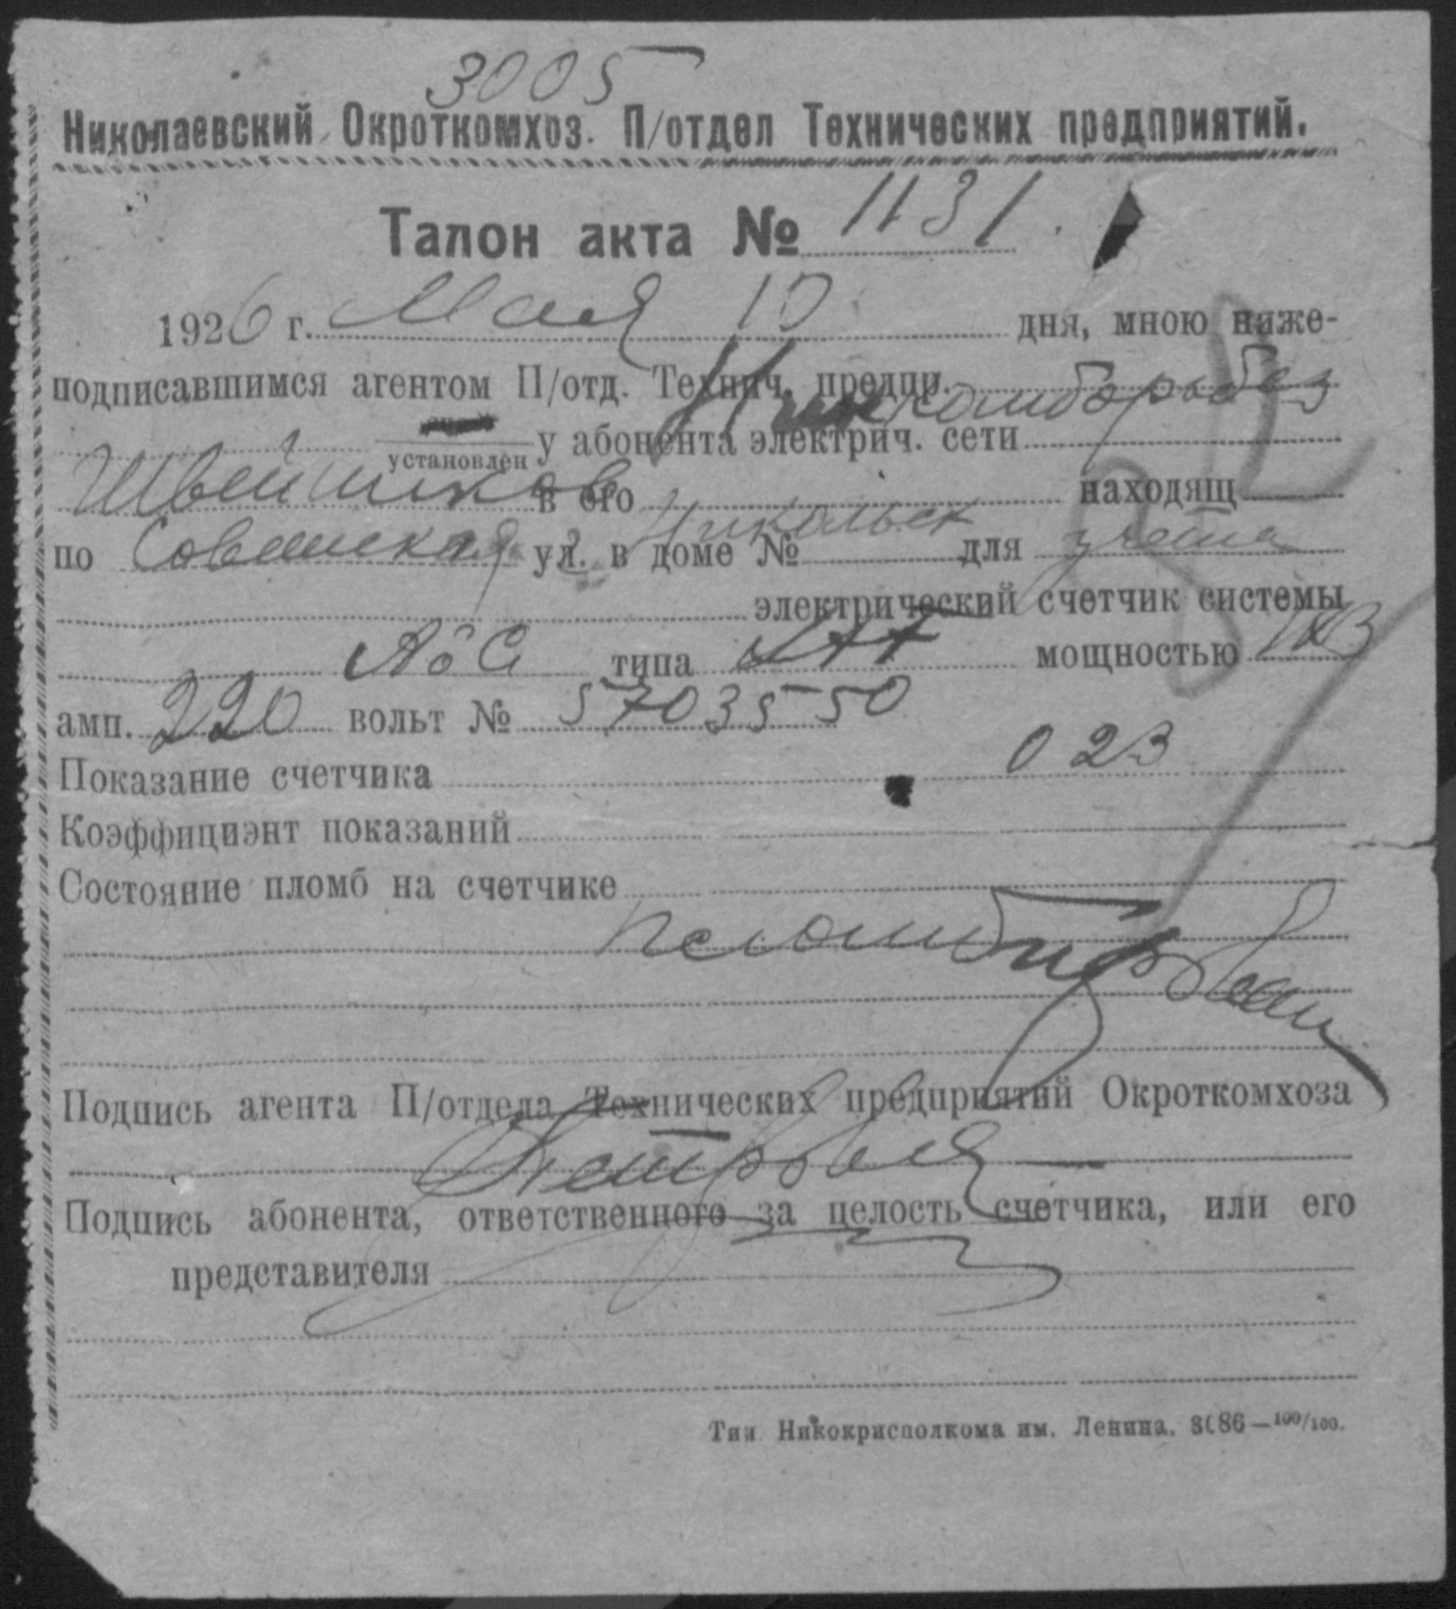 3005
Николаевский Окроткомхоз. П/отдел Технических предприятий.
Талон акта № 1131
1926 г. Мая 10 дня, мною ниже-
подписавшимся агентом П/отд. Технич. предпр.
установлен у абонента электрич. сети
в его находящ
по Советская ул. в доме № Никольск для учета
электрический счетчик системы
типа мощностью
амп. 220 вольт № 5703550
Показание счетчика 023
Коэффициэнт показаний
Состояние пломб на счетчике
Подпись агента П/отдела Технических предприятий Окроткомхоза
Подпись абонента, ответственного за целость счетчика, или его
представителя
Тип. Никокрисполкома им. Ленина. 3086—100/100.